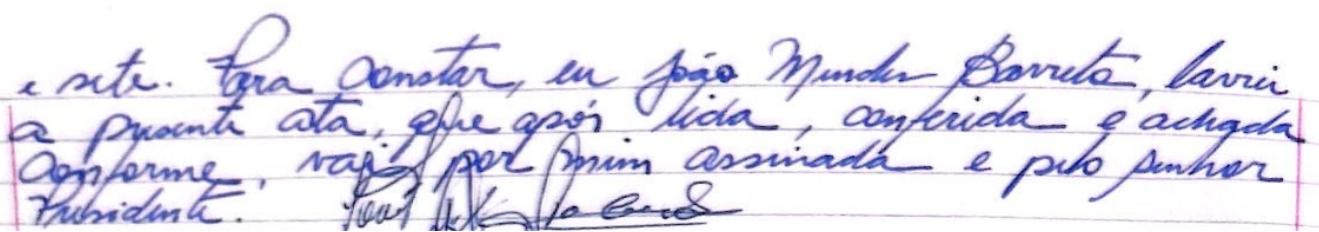 e sete. Para constar, eu João Mendes Barreto, lavrei
a presente ata, que após lida, conferida e achada
conforme, vai por mim assinada e pelo senhor
Presidente.